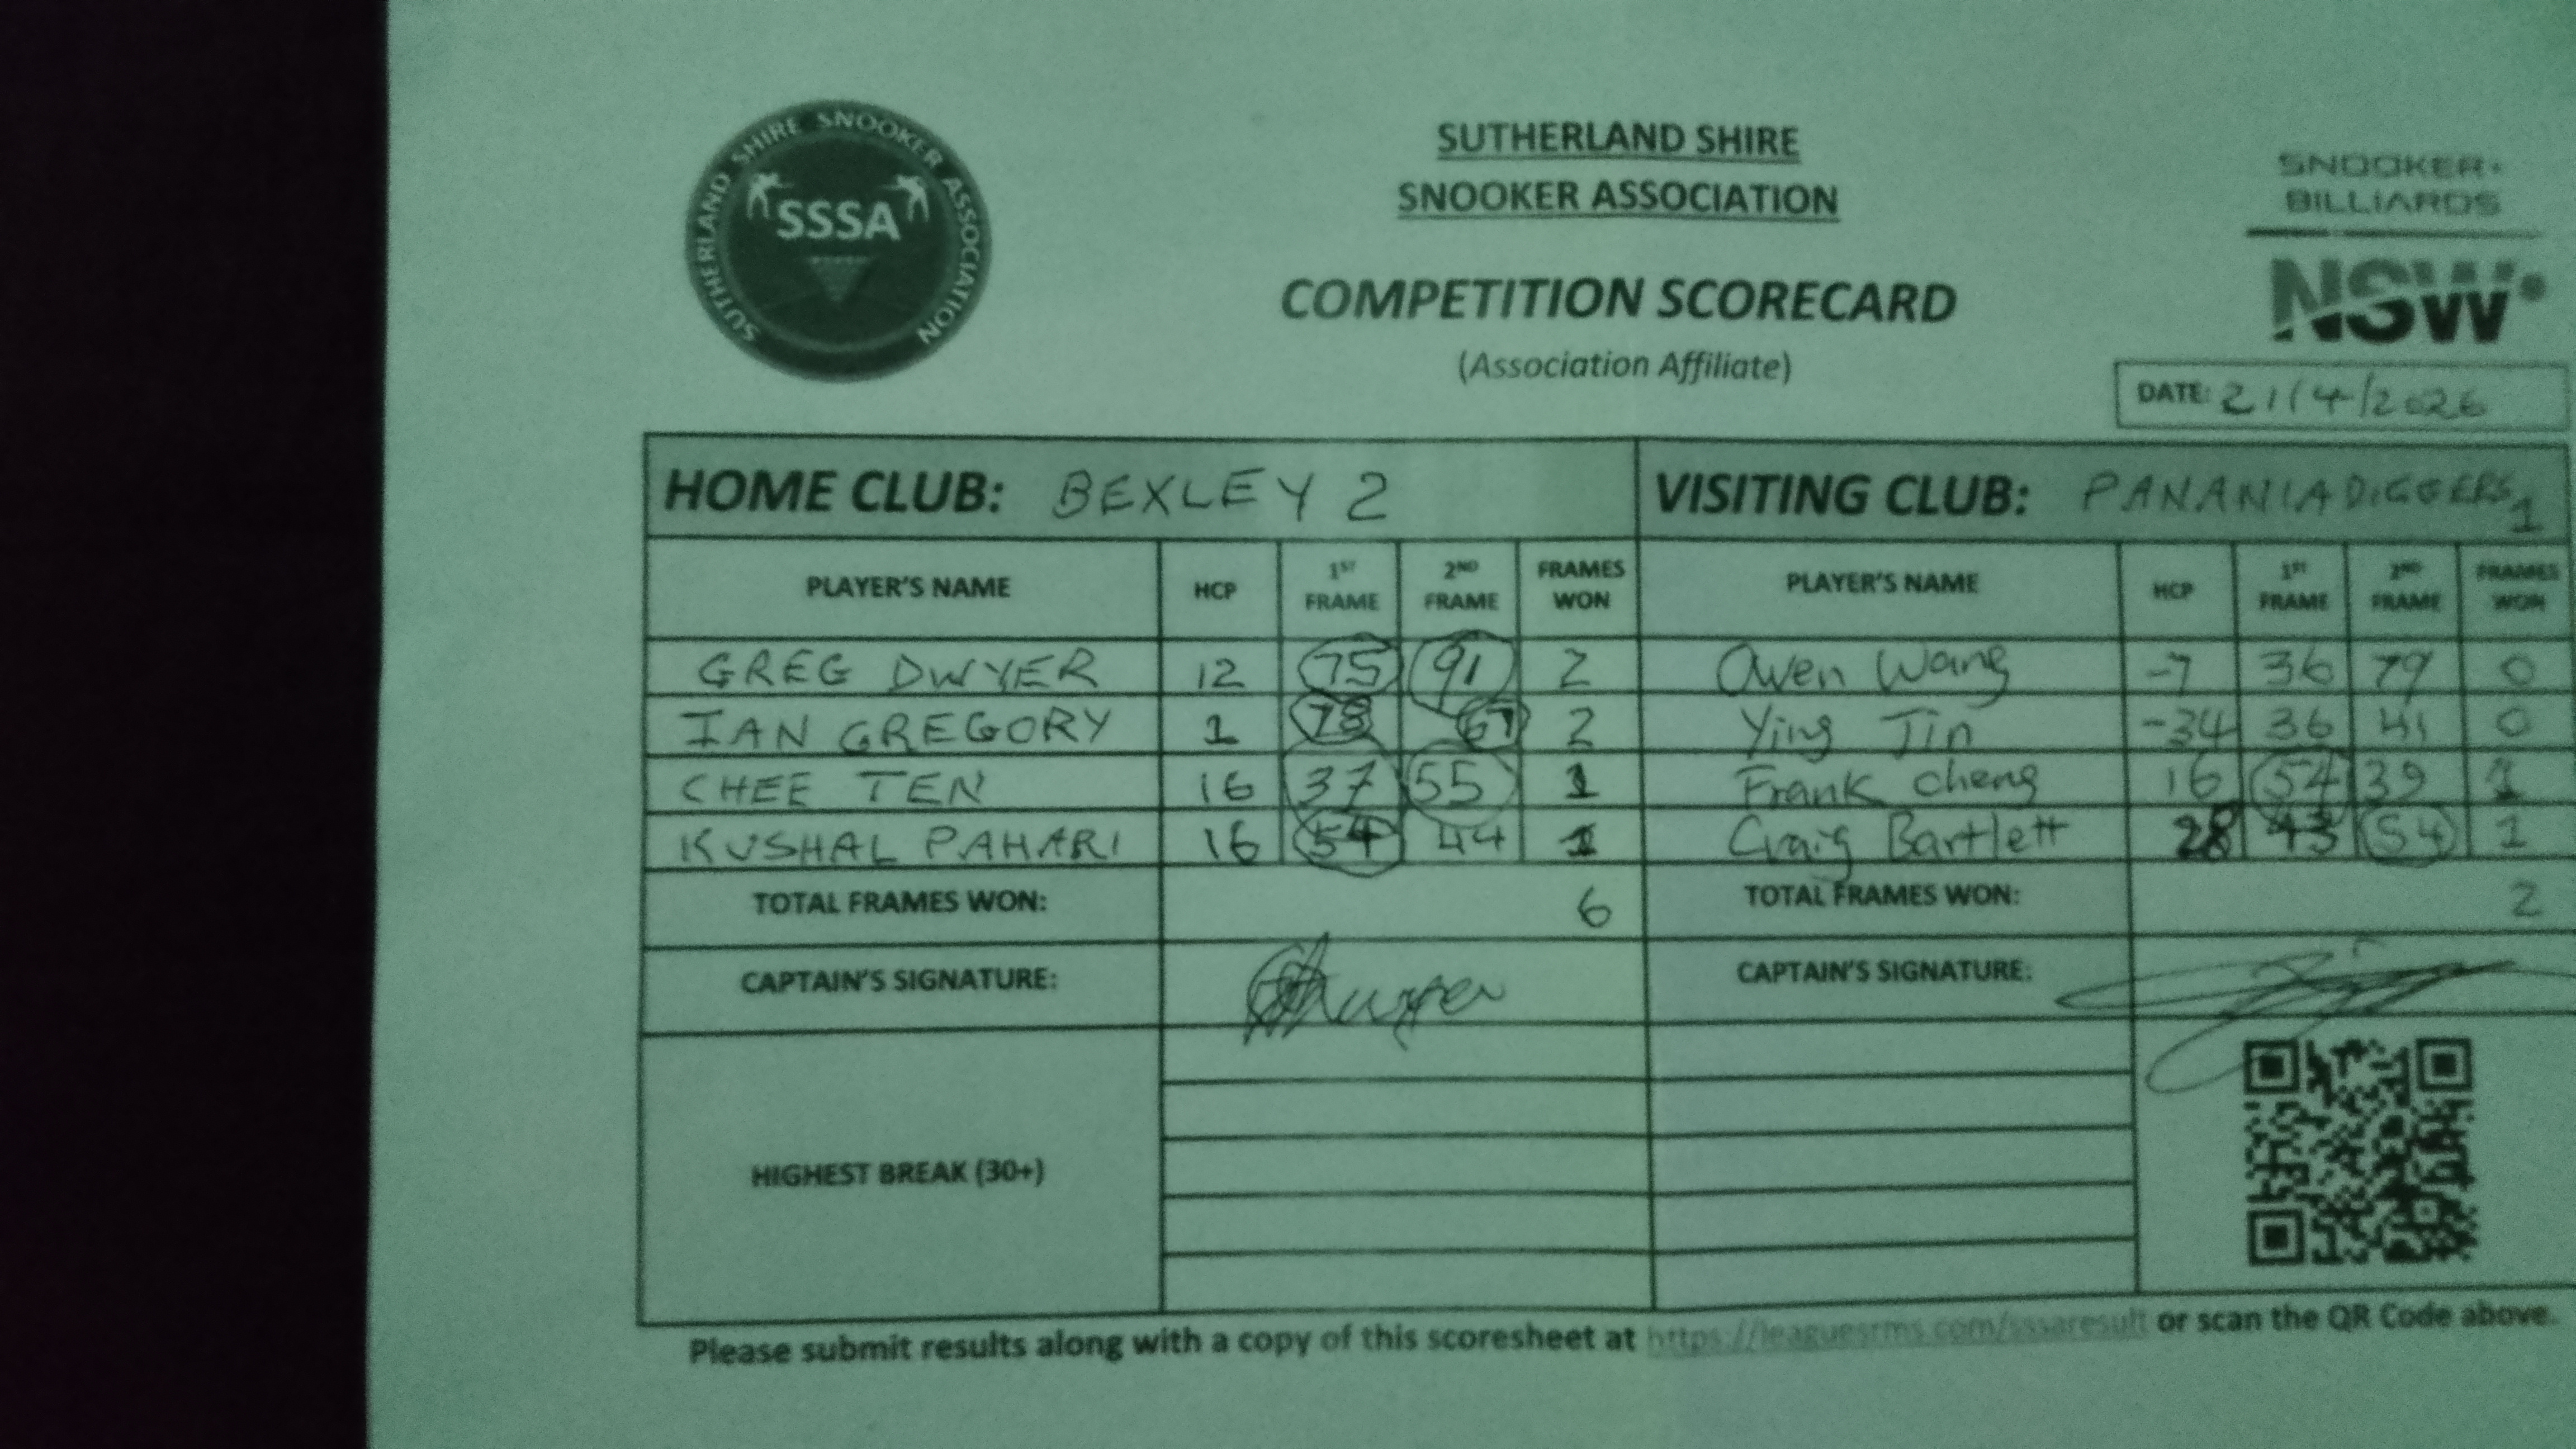 SUTHERLAND SHIRE SNOOKER ASSOCIATION
SSSA
SUTHERLAND SHIRE
SNOOKER ASSOCIATION
COMPETITION SCORECARD
(Association Affiliate)
SNOOKER+
BILLIARDS
NSW
DATE: 21/4/2026
HOME CLUB: BEXLEY 2 VISITING CLUB: PANANIA DIGGERS 1
PLAYER'S NAME HCP 1ST FRAME 2ND FRAME FRAMES WON PLAYER'S NAME HCP 1ST FRAME 2ND FRAME FRAMES WON
GREG DWYER 12 75 91 2 Owen Wang -7 36 79 0
IAN GREGORY 1 78 67 2 Ying Jin -34 36 41 0
CHEE TEN 16 37 55 1 Frank Cheng 16 54 39 1
KUSHAL PAHARI 16 54 44 1 Craig Bartlett 28 43 54 1
TOTAL FRAMES WON: 6 TOTAL FRAMES WON: 2
CAPTAIN'S SIGNATURE: CAPTAIN'S SIGNATURE:
HIGHEST BREAK (30+)
Please submit results along with a copy of this scoresheet at https://leaguesrms.com/sssaresult or scan the QR Code above.